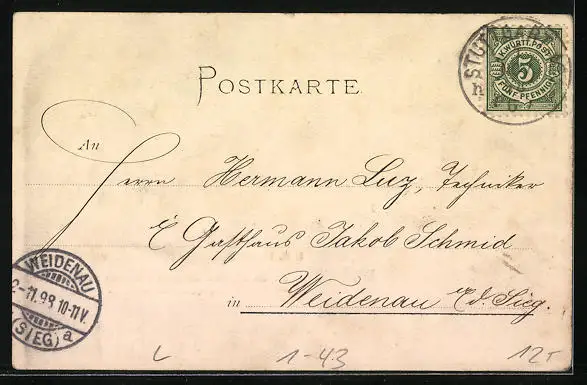 STUTTGART
K. WÜRTT. POST
5
FÜNF PFENNIG
POSTKARTE
An
Herrn Hermann Luz, Techniker
Gasthaus Jakob Schmid
in Weidenau a/d. Sieg.
WEIDENAU
11.98.10-11V.
(SIEG) a
1-43
12